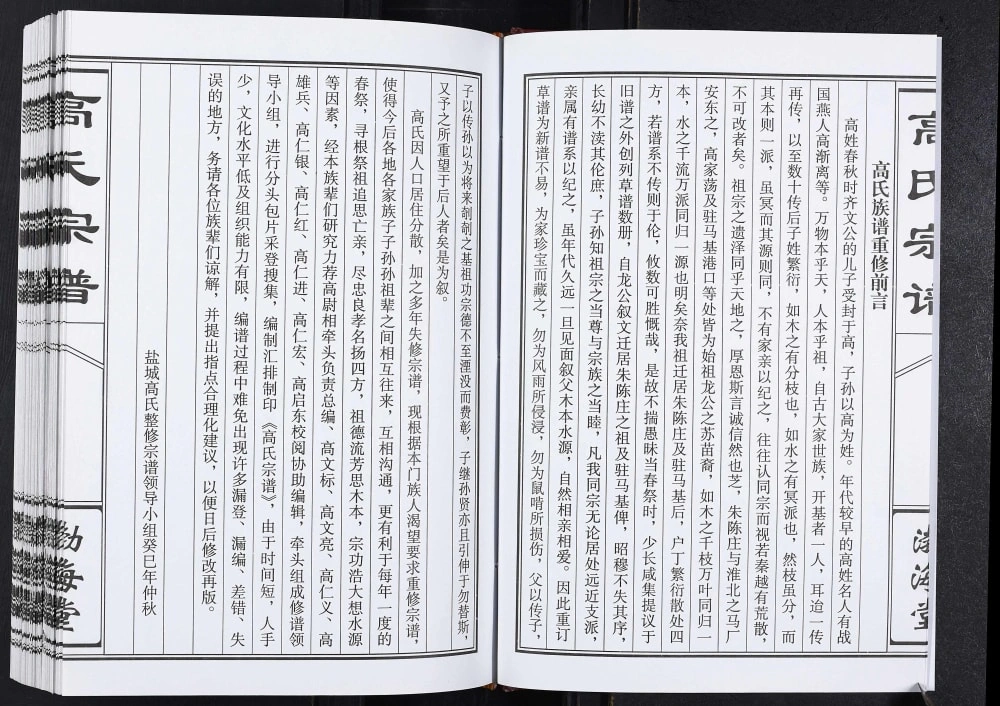 高氏宗谱
渤海堂
高氏族谱重修前言
高姓春秋时齐文公的儿子受封于高，子孙以高为姓。年代较早的高姓名人有战
国燕人高渐离等。万物本乎天，人本乎祖，自古大家世族，开基者一人，耳迨一传
再传，以至数十传后子姓繁衍，如木之有分枝也，如水之有冥派也，然枝虽分，而
其本则一派，虽冥而其源则同，不有家亲以纪之，往往认同宗而视若秦越有荒散，
不可改者矣。祖宗之遗泽同乎天地之，厚恩斯言诚信然也芝，朱陈庄与淮北之马厂
安东之，高家荡及驻马基港口等处皆为始祖龙公之苏苗裔，如木之千枝万叶同归一
本，水之千流万派同归一源也明矣奈我祖迁居朱陈庄及驻马基后，户丁繁衍散处四
方，若谱系不传则于伦，攸数可胜慨哉，是故不揣愚昧当春祭时，少长咸集提议于
旧谱之外创列草谱数册，自龙公叙文迁居朱陈庄之祖及驻马基俾，昭穆不失其序，
长幼不渎其伦庶，子孙知祖宗之当尊与宗族之当睦，凡我同宗无论居处远近支派，
亲属有谱系以纪之，虽年代久远一旦见面叙父木本水源，自然相亲相爱。因此重订
草谱为新谱不易，为家珍宝而藏之，勿为风雨所侵浸，勿为鼠啃所损伤，父以传子，
子以传孙以为将来剞剞之基祖功宗德不至湮没而费彰，子继孙贤亦且引伸于勿替斯，
又予之所重望于后人者矣是为叙。
高氏因人口居住分散，加之多年失修宗谱，现根据本门族人渴望要求重修宗谱，
使得今后各地各家族子子孙孙祖辈之间相互往来，互相沟通，更有利于每年一度的
春祭，寻根祭祖追思亡亲，尽忠良孝名扬四方，祖德流芳思木本，宗功浩大想水源
等因素，经本族辈们研究力荐高尉相牵头负责总编、高文标、高文亮、高仁义、高
雄兵、高仁银、高仁红、高仁进、高仁宏、高启东校阅协助编辑，牵头组成修谱领
导小组，进行分头包片采登搜集，编制汇排制印《高氏宗谱》，由于时间短，人手
少，文化水平低及组织能力有限，编谱过程中难免出现许多漏登、漏编、差错、失
误的地方，务请各位族辈们谅解，并提出指点合理化建议，以便日后修改再版。
盐城高氏整修宗谱领导小组癸巳年仲秋
高氏宗谱
渤海堂